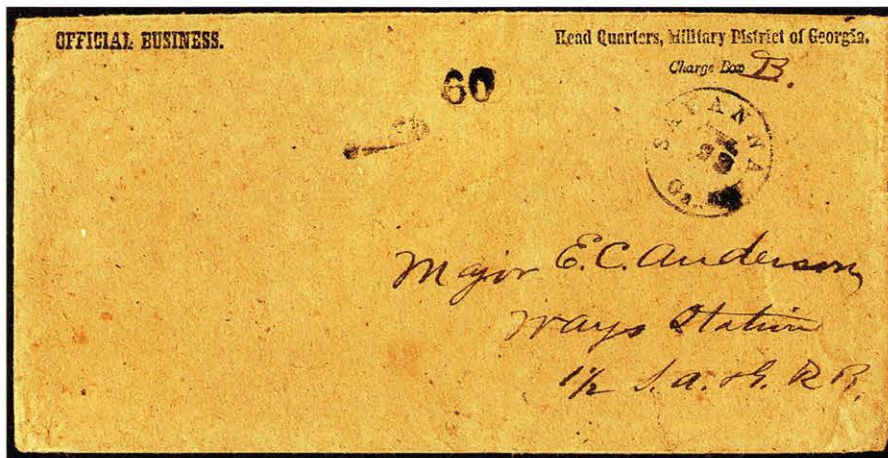 OFFICIAL BUSINESS.
Head Quarters, Military District of Georgia,
Charge Box B.
60
SAVANNA GA.
Major E.C. Anderson,
Ways Station
1½ S. A. & G. R R.